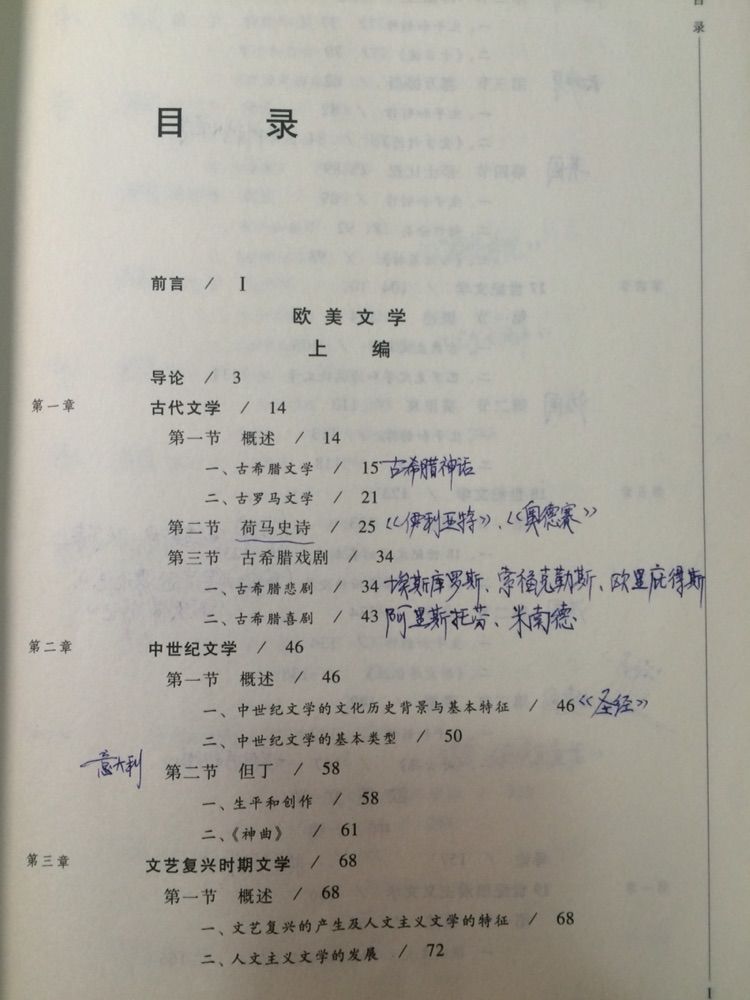 目录
目 录
前言 / I
欧美文学
上 编
导论 / 3
第一章 古代文学 / 14
第一节 概述 / 14
一、古希腊文学 / 15 古希腊神话
二、古罗马文学 / 21
第二节 荷马史诗 / 25 《伊利亚特》、《奥德赛》
第三节 古希腊戏剧 / 34
一、古希腊悲剧 / 34 埃斯库罗斯、索福克勒斯、欧里庇得斯
二、古希腊喜剧 / 43 阿里斯托芬、米南德
第二章 中世纪文学 / 46
第一节 概述 / 46
一、中世纪文学的文化历史背景与基本特征 / 46 《圣经》
二、中世纪文学的基本类型 / 50
意大利 第二节 但丁 / 58
一、生平和创作 / 58
二、《神曲》 / 61
第三章 文艺复兴时期文学 / 68
第一节 概述 / 68
一、文艺复兴的产生及人文主义文学的特征 / 68
二、人文主义文学的发展 / 72
1